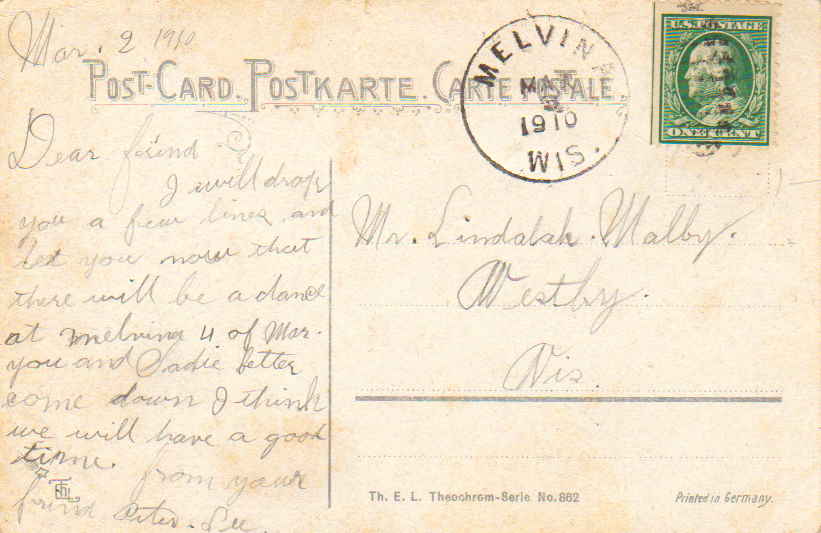 Mar. 2 1910
POST-CARD. POSTKARTE. CARTE POSTALE.
MELVINA
MAR
1910
WIS.
U.S. POSTAGE
ONE CENT
Dear friend
I will drop
you a few lines and
let you now that
there will be a dance
at melvina 4 of Mar.
you and Sadie better
come down I think
we will have a good
time. from your
friend Lee.
Mr. Malby.
Westby.
Wis.
Th. E. L. Theochrom-Serie No. 862
Printed in Germany.